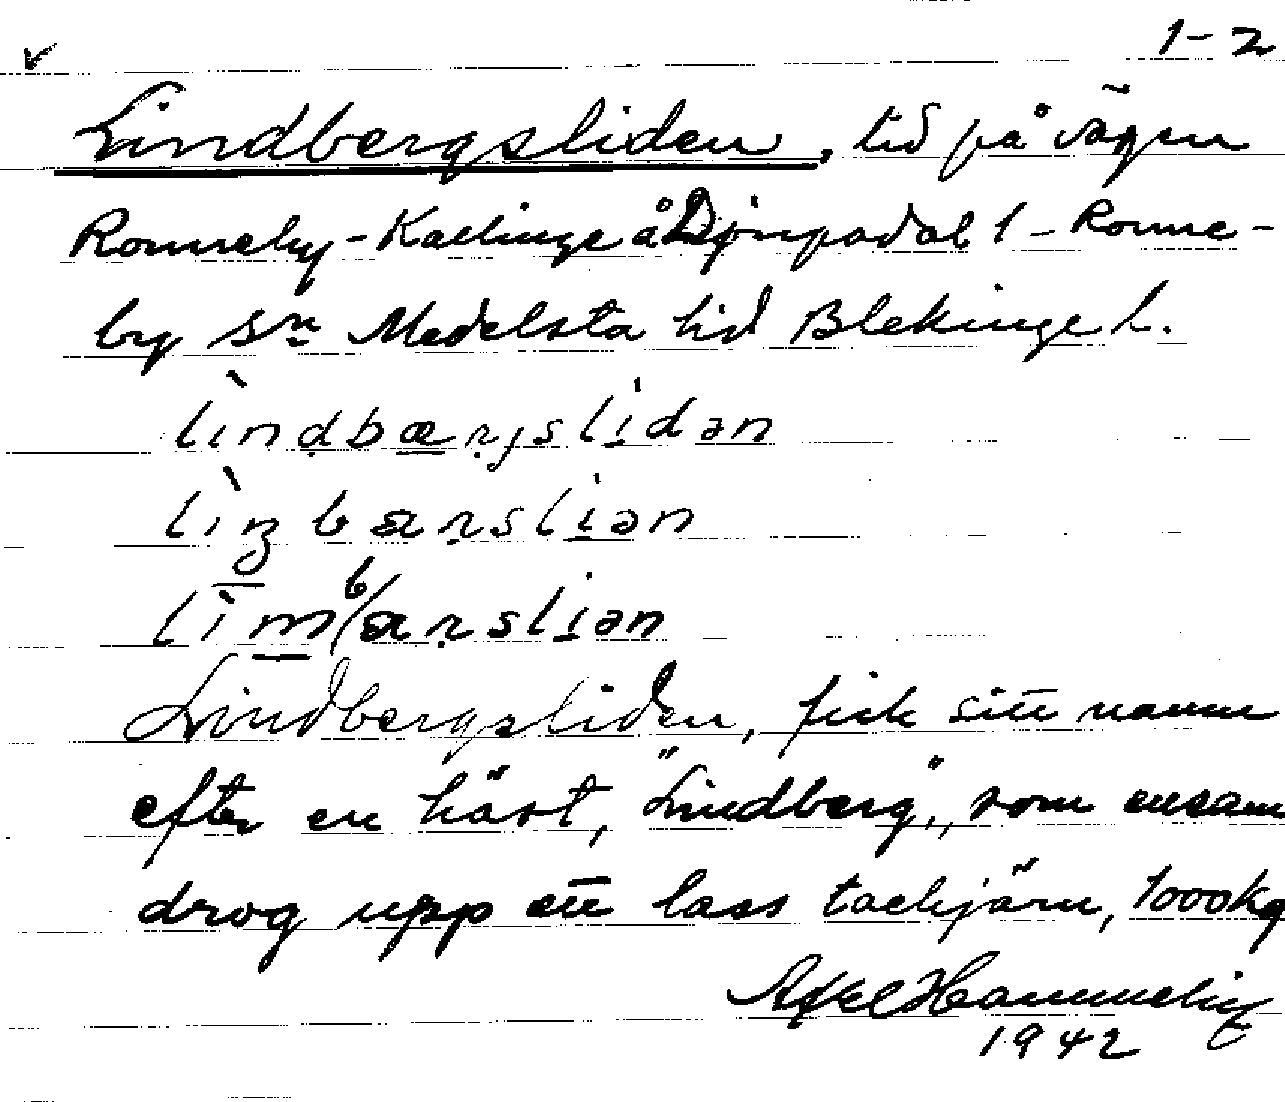 1-2
Lindbergsliden, lid på vägen
Ronneby-Kallinge å Djupadal 1 - Ronne-
by sn Medelsta hd Blekinge l.
lìndbærjslidən
lìnbærslian
lìmbærsliən
Lindbergsliden, fick sitt namn
efter en häst, "Lindberg", som ensam
drog upp ett lass tackjärn, 1000 kg
Axel Hammeby
1942